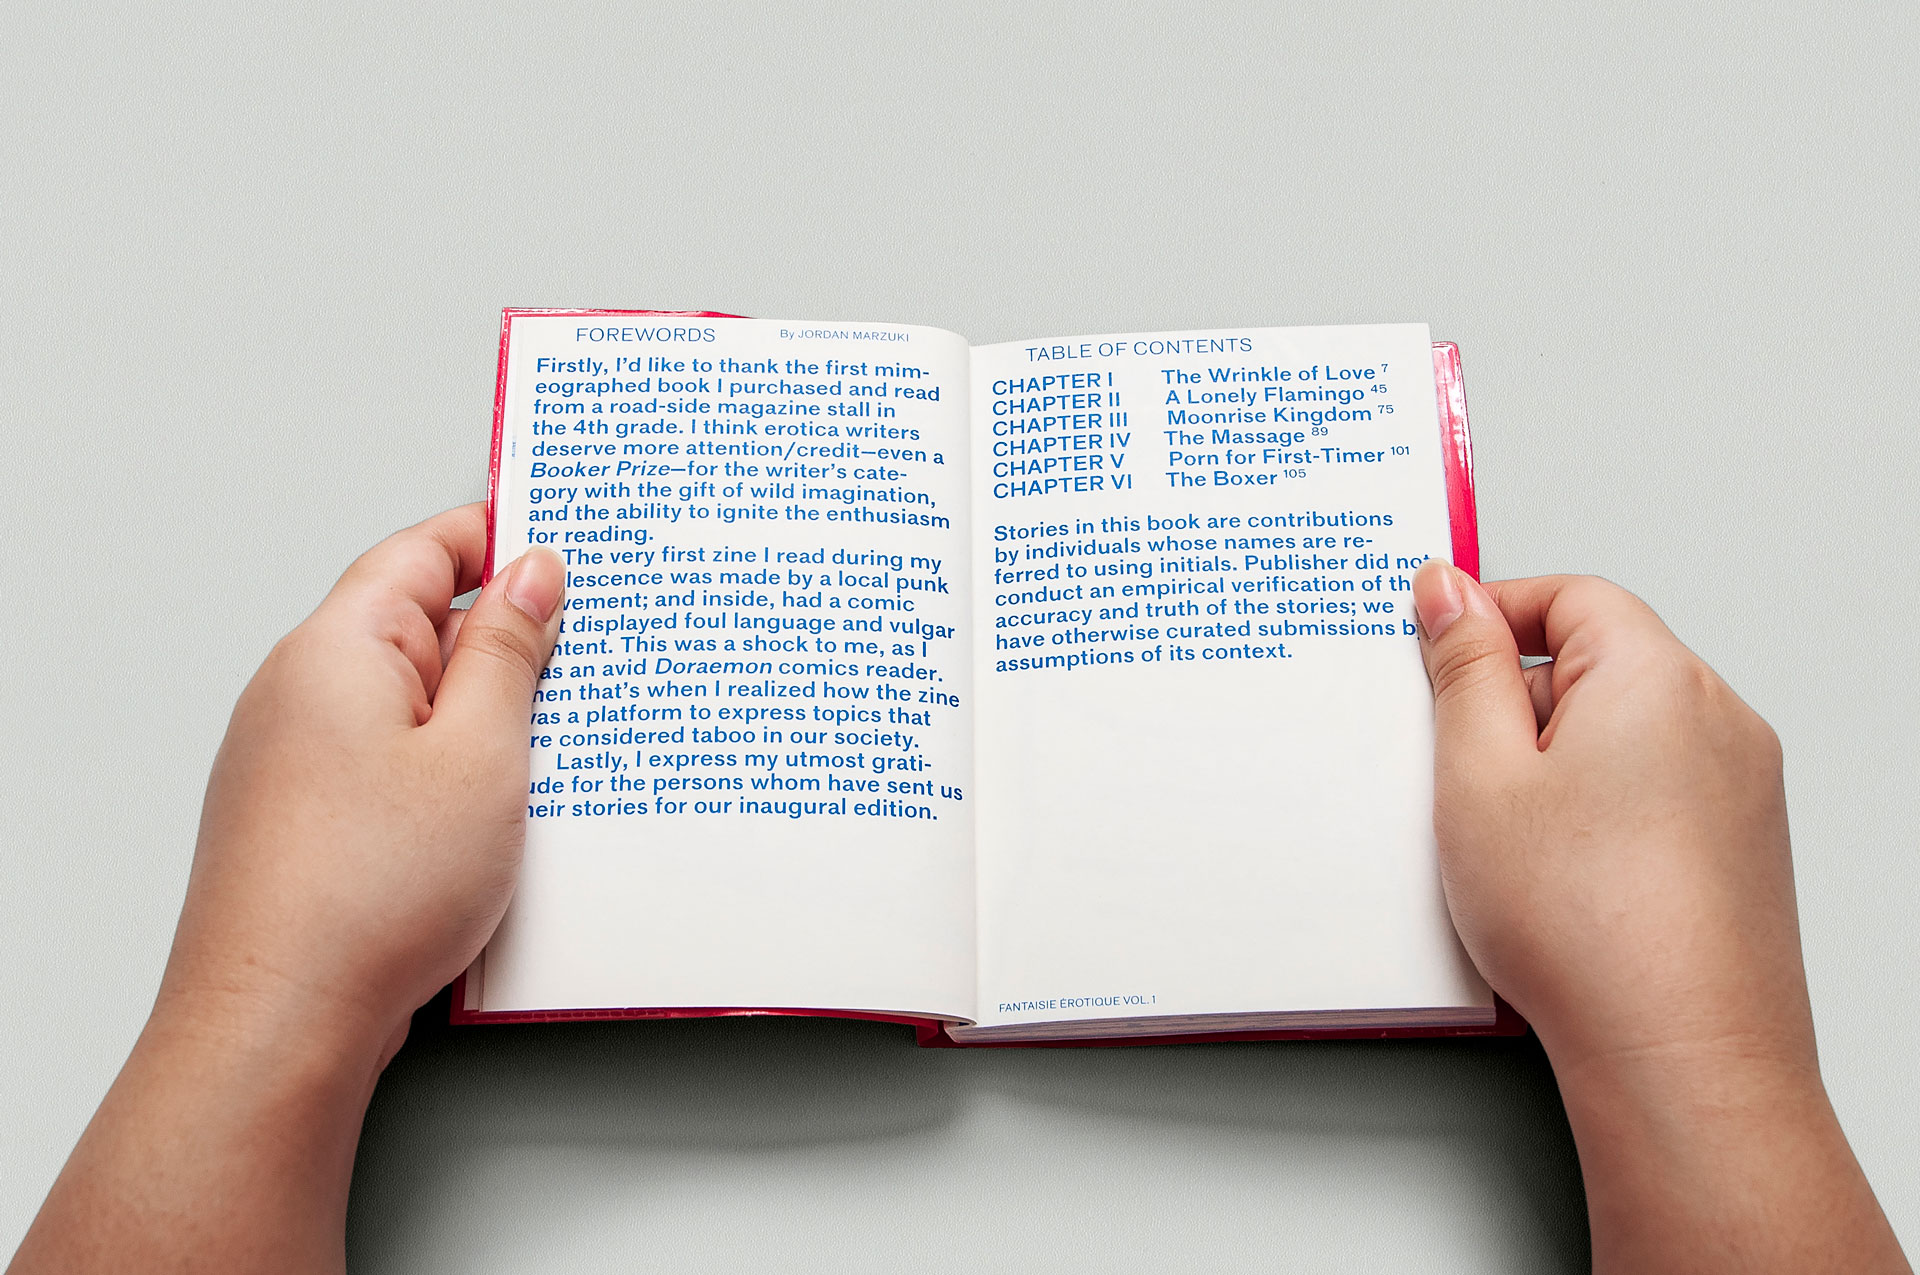 FOREWORDS By JORDAN MARZUKI
Firstly, I'd like to thank the first mim-
eographed book I purchased and read
from a road-side magazine stall in
the 4th grade. I think erotica writers
deserve more attention/credit—even a
Booker Prize—for the writer's cate-
gory with the gift of wild imagination,
and the ability to ignite the enthusiasm
for reading.
The very first zine I read during my
lescence was made by a local punk
vement; and inside, had a comic
t displayed foul language and vulgar
ntent. This was a shock to me, as I
as an avid Doraemon comics reader.
hen that's when I realized how the zine
as a platform to express topics that
re considered taboo in our society.
Lastly, I express my utmost grati-
ude for the persons whom have sent us
heir stories for our inaugural edition.
TABLE OF CONTENTS
CHAPTER I The Wrinkle of Love 7
CHAPTER II A Lonely Flamingo 45
CHAPTER III Moonrise Kingdom 75
CHAPTER IV The Massage 89
CHAPTER V Porn for First-Timer 101
CHAPTER VI The Boxer 105
Stories in this book are contributions
by individuals whose names are re-
ferred to using initials. Publisher did not
conduct an empirical verification of th
accuracy and truth of the stories; we
have otherwise curated submissions by
assumptions of its context.
FANTAISIE ÉROTIQUE VOL. 1